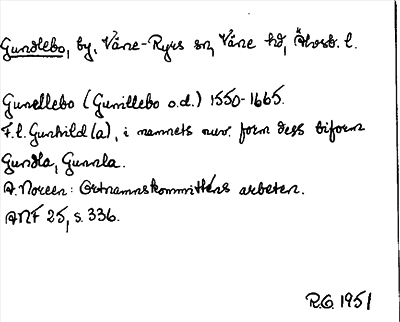 Gundlebo, by, Väne-Ryrs sn, Väne hd, Älvsb. l.
Gunellebo (Gunillebo o.d.) 1550-1665.
F.l. Gunhild(a), i namnets nuv. form dess biform
Gundla, Gunnla.
A. Noreen: Ortnamnskommitténs arbeten.
ANF 25, s. 336.
R.G. 1951